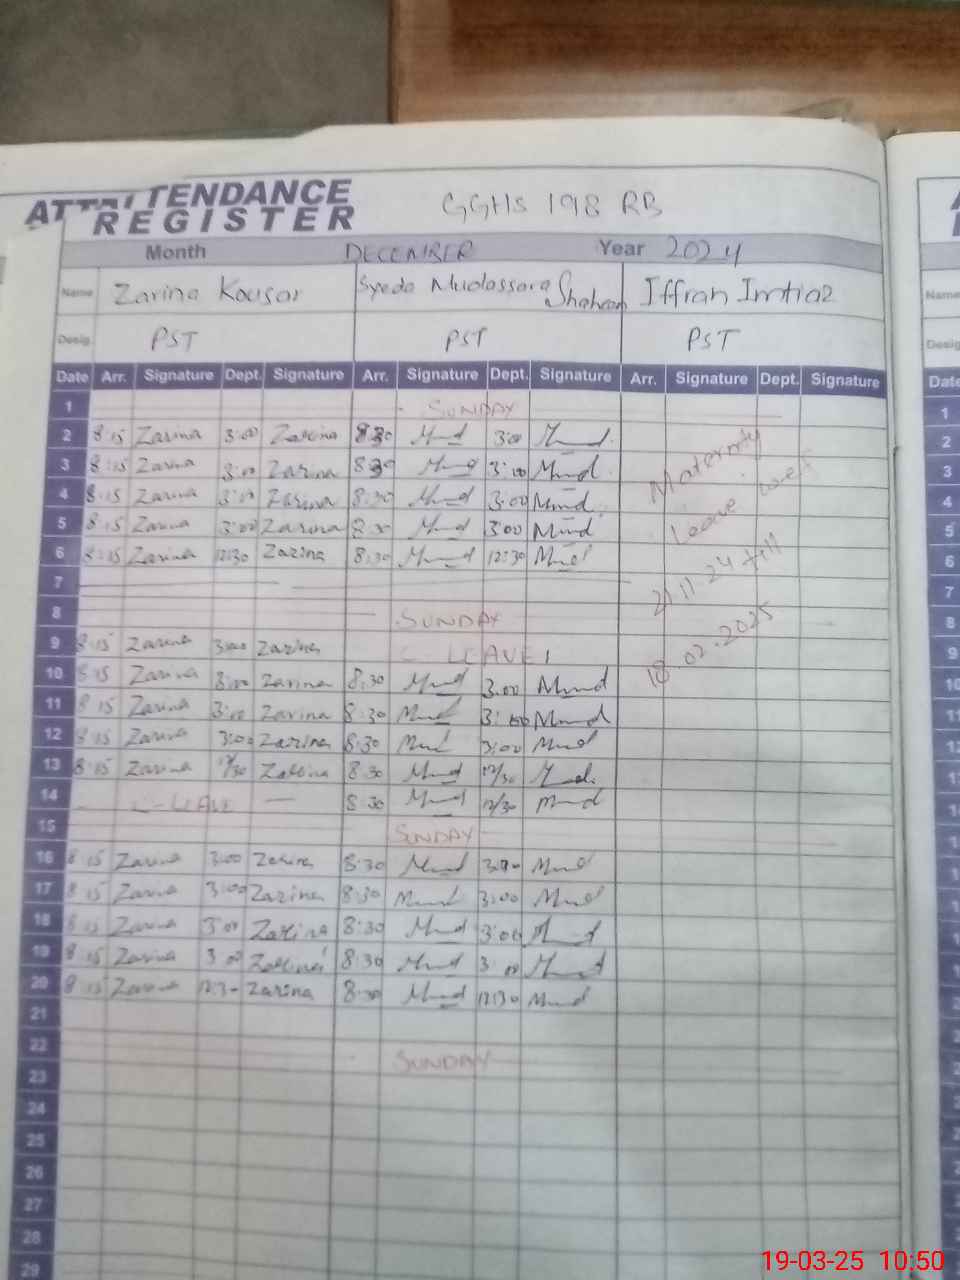 ATTENDANCE
REGISTER
GGHS 198 RB
Month DECEMBER Year 2024
Name Zarina Kousar Syeda Mudassara Shaheen Iffran Imtiaz
Desig. PST PST PST
Date Arr. Signature Dept. Signature Arr. Signature Dept. Signature Arr. Signature Dept. Signature
1 SUNDAY
2 8:15 Zarina 3:00 Zarina 8:30 Mud 3:00 Mud
3 8:15 Zarina 3:00 Zarina 8:30 Mud 3:00 Mud
4 8:15 Zarina 3:00 Zarina 8:30 Mud 3:00 Mud
5 8:15 Zarina 3:00 Zarina 8:30 Mud 3:00 Mud
6 8:15 Zarina 12:30 Zarina 8:30 Mud 12:30 Mud
7
8 SUNDAY
9 8:15 Zarina 3:00 Zarina LEAVE
10 8:15 Zarina 3:00 Zarina 8:30 Mud 3:00 Mud
11 8:15 Zarina 3:00 Zarina 8:30 Mud 3:00 Mud
12 8:15 Zarina 3:00 Zarina 8:30 Mud 3:00 Mud
13 8:15 Zarina 12/30 Zarina 8:30 Mud 12/30 Mud
14 C-LEAVE 8:30 Mud 12/30 Mud
15 SUNDAY
16 8:15 Zarina 3:00 Zarina 8:30 Mud 3:00 Mud
17 8:15 Zarina 3:00 Zarina 8:30 Mud 3:00 Mud
18 8:15 Zarina 3:00 Zarina 8:30 Mud 3:00 Mud
19 8:15 Zarina 3:00 Zarina 8:30 Mud 3:00 Mud
20 8:15 Zarina 12:30 Zarina 8:30 Mud 12:30 Mud
21
22 SUNDAY
23
24
25
26
27
28
29
Maternity
Leave wef
21.11.24 till
18.02.2025
Name
Desig.
Date
1
2
3
4
5
6
7
8
9
10
11
12
19-03-25 10:50